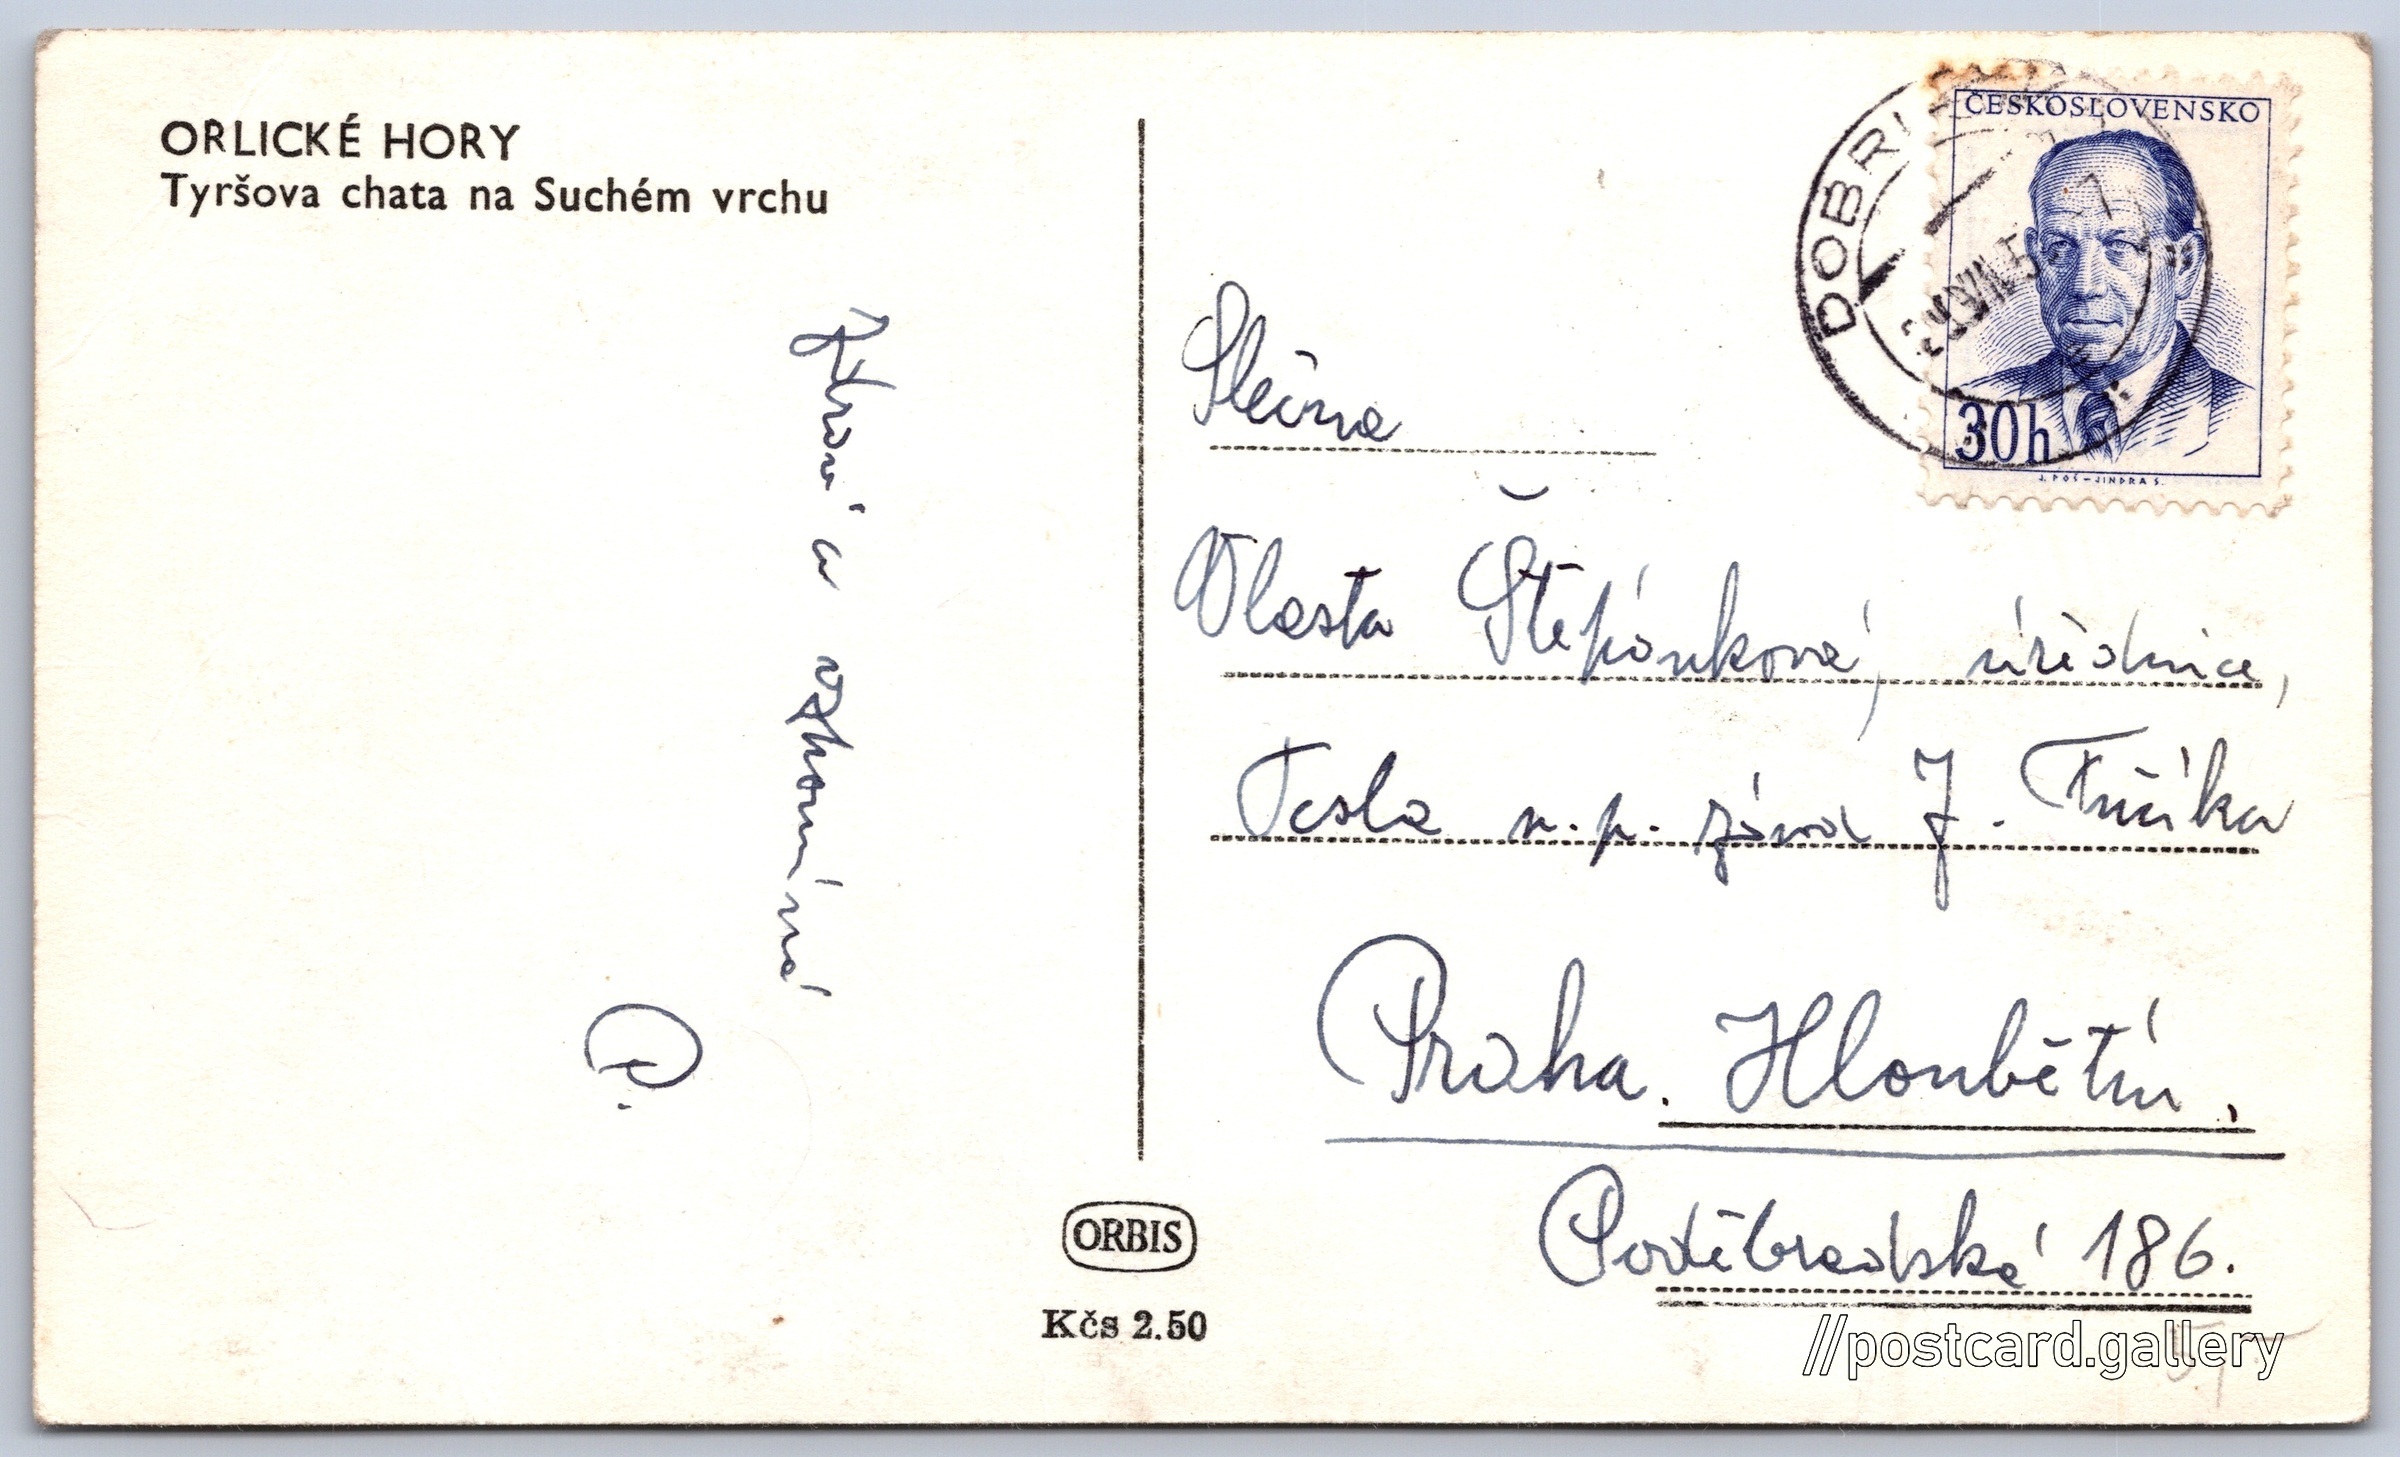 ORLICKÉ HORY
Tyršova chata na Suchém vrchu
Zdraví a vzpomíná
P.
ORBIS
Kčs 2.50
DOBRI
ČESKOSLOVENSKO
30h
J. POŠ – JINDRA S.
Slečna
Vlasta Štěpánková, úřednice,
Tesla n.p. závod J. Fučíka
Praha. Hloubětín.
Poděbradská 186.
//postcard.gallery